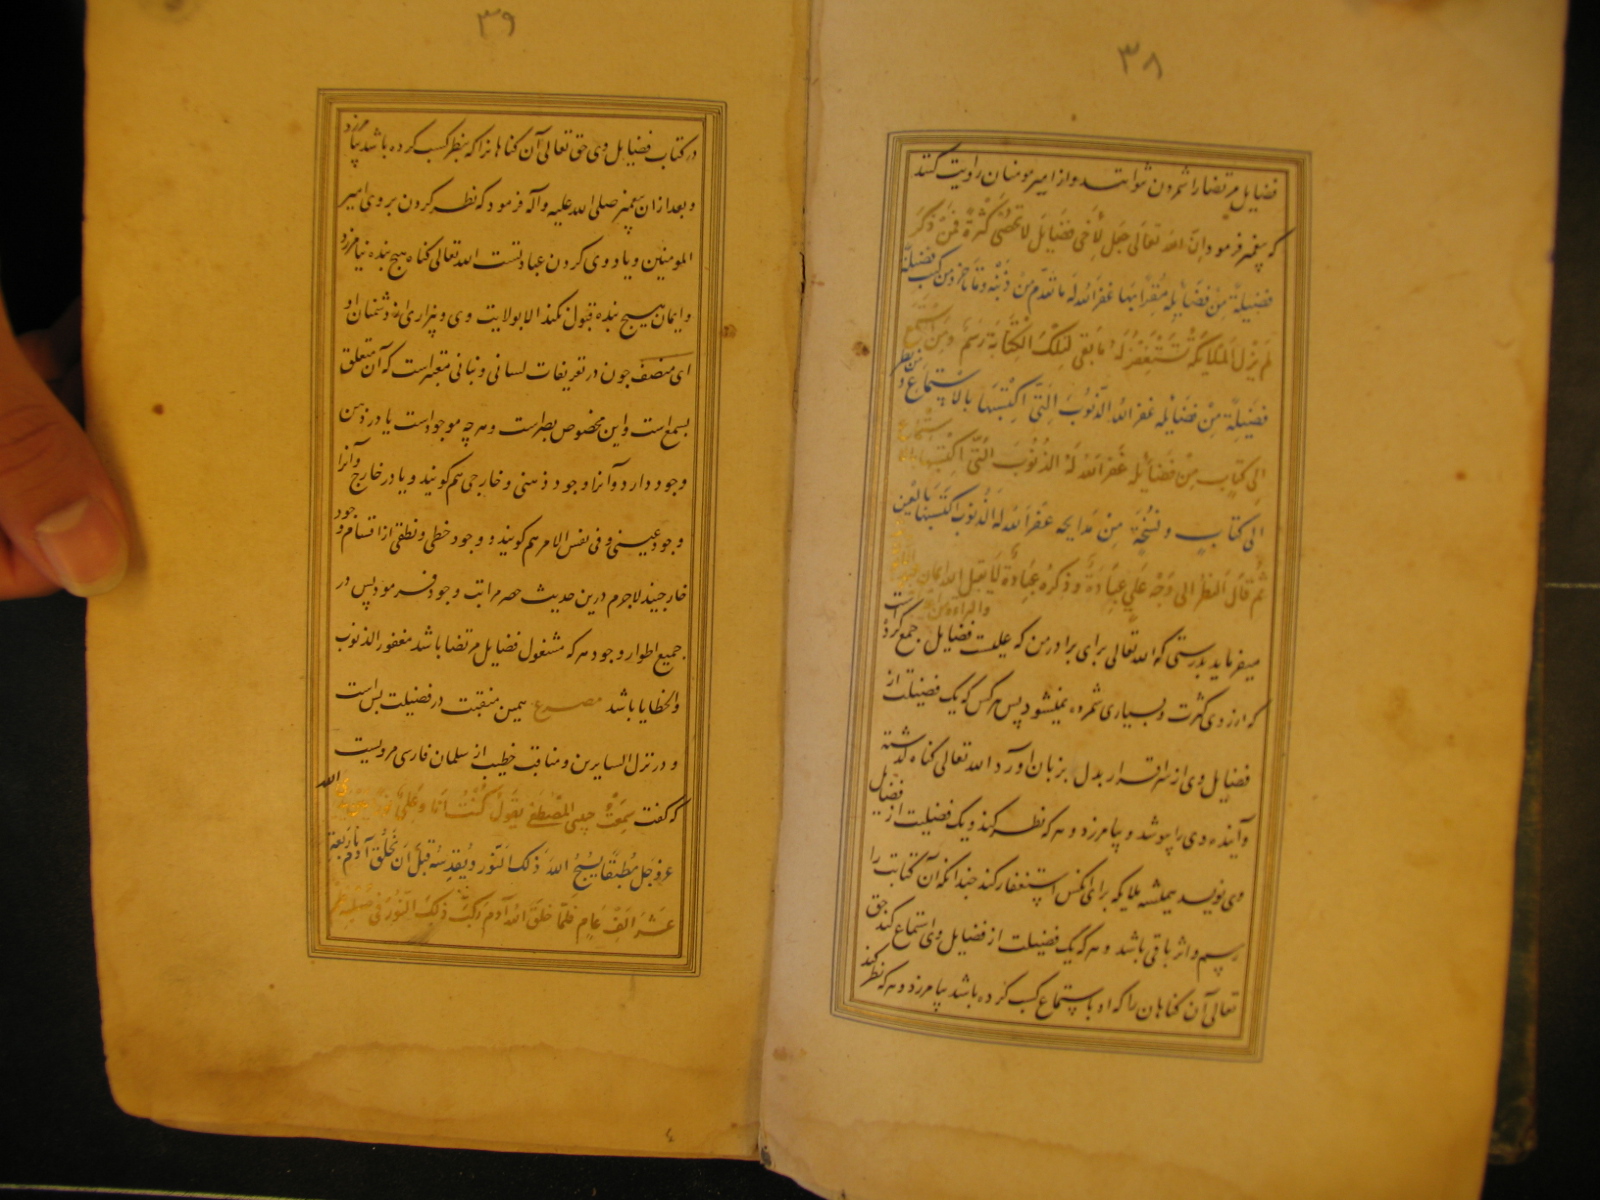 ٣٨
فضایل مرتضا را شمردن توانند و از امیر مومنان روایت کنند
که پیغمبر فرمود ان الله تعالی جعل لأخی فضایل لا تحصی کثرة فمن ذکر
فضیلة من فضایله مقرا بها غفر الله له ما تقدم من ذنبه و ما تاخر و من کتب فضیلة
لم یزل الملایکة تستغفر له ما بقی لتلک الکتابة رسم و من استمع
فضیلة من فضایله غفر الله الذنوب التی اکتسبها بالاستماع و من نظر
الی کتاب من فضایله غفر الله له الذنوب التی اکتسبها
الی کتاب و نسخة من مدایحه غفر الله له الذنوب اکتسبها بالعین
ثم قال النظر الی وجه علی عبادة و ذکره عبادة لا یقبل الله ایمان
میفرماید بدرستی که الله تعالی برای برادر من که علیست فضایل جمع کرده است
که از زوی کثرت و بسیاری شمرده نمیشود پس هر کس که یک فضیلت از
فضایل وی از سر اقرار بدل بزبان آورد الله تعالی کناه کذشته
و آینده وی را بپوشد و بیامرزد و هر که نظر کند و یک فضیلت از فضایل
وی نویسد همیشه ملایکه برای آنکس استغفار کند چندانکه آن کتابت را
رسم و اثر باقی باشد و هر که یک فضیلت از فضایل وی استماع کند حق
تعالی آن کناهان را که او باستماع کسب کرده باشد بیامرزد و هر که نظر کند
٣٩
در کتاب فضایل وی حق تعالی آن کناهانرا که بنظر کسب کرده باشد بیامرزد
و بعد از ان پیغمبر صلی الله علیه و آله فرمود که نظر کردن بروی امیر
المومنین و یاد وی کردن عبادتست الله تعالی کناه هیچ بنده نیامرزد
و ایمان هیچ بنده قبول نکند الا بولایت وی و بیزاری از دشمنان او
ای منصف چون در تعریفات لسانی و بنانی معتبر است که آن متعلق
بسمع است و این مخصوص بصر است و هر چه موجود است یا در ذهن
وجود دارد و آنرا وجود ذهنی و خارجی هم کویند و یا در خارج و آنرا
وجود عینی و فی نفس الامر هم کویند و وجود خطی و نطقی از اقسام وجود
خارجیند لاجرم درین حدیث حصر مراتب وجود فرمود پس در
جمیع اطوار وجود هر که مشغول فضایل مرتضا باشد مغفور الذنوب
والخطایا باشد مصرع همین منقبت در فضیلت بس است
و در نزل السایرین و مناقب خطیب از سلمان فارسی مرویست
که کفت سمعت حبیبی المصطفی یقول کنت انا و علی نورا بین یدی الله
عز و جل مطبقا یسبح الله ذلک النور و یقدسه قبل ان یخلق آدم باربعة
عشر الف عام فلما خلق الله آدم رکب ذلک النور فی صلبه